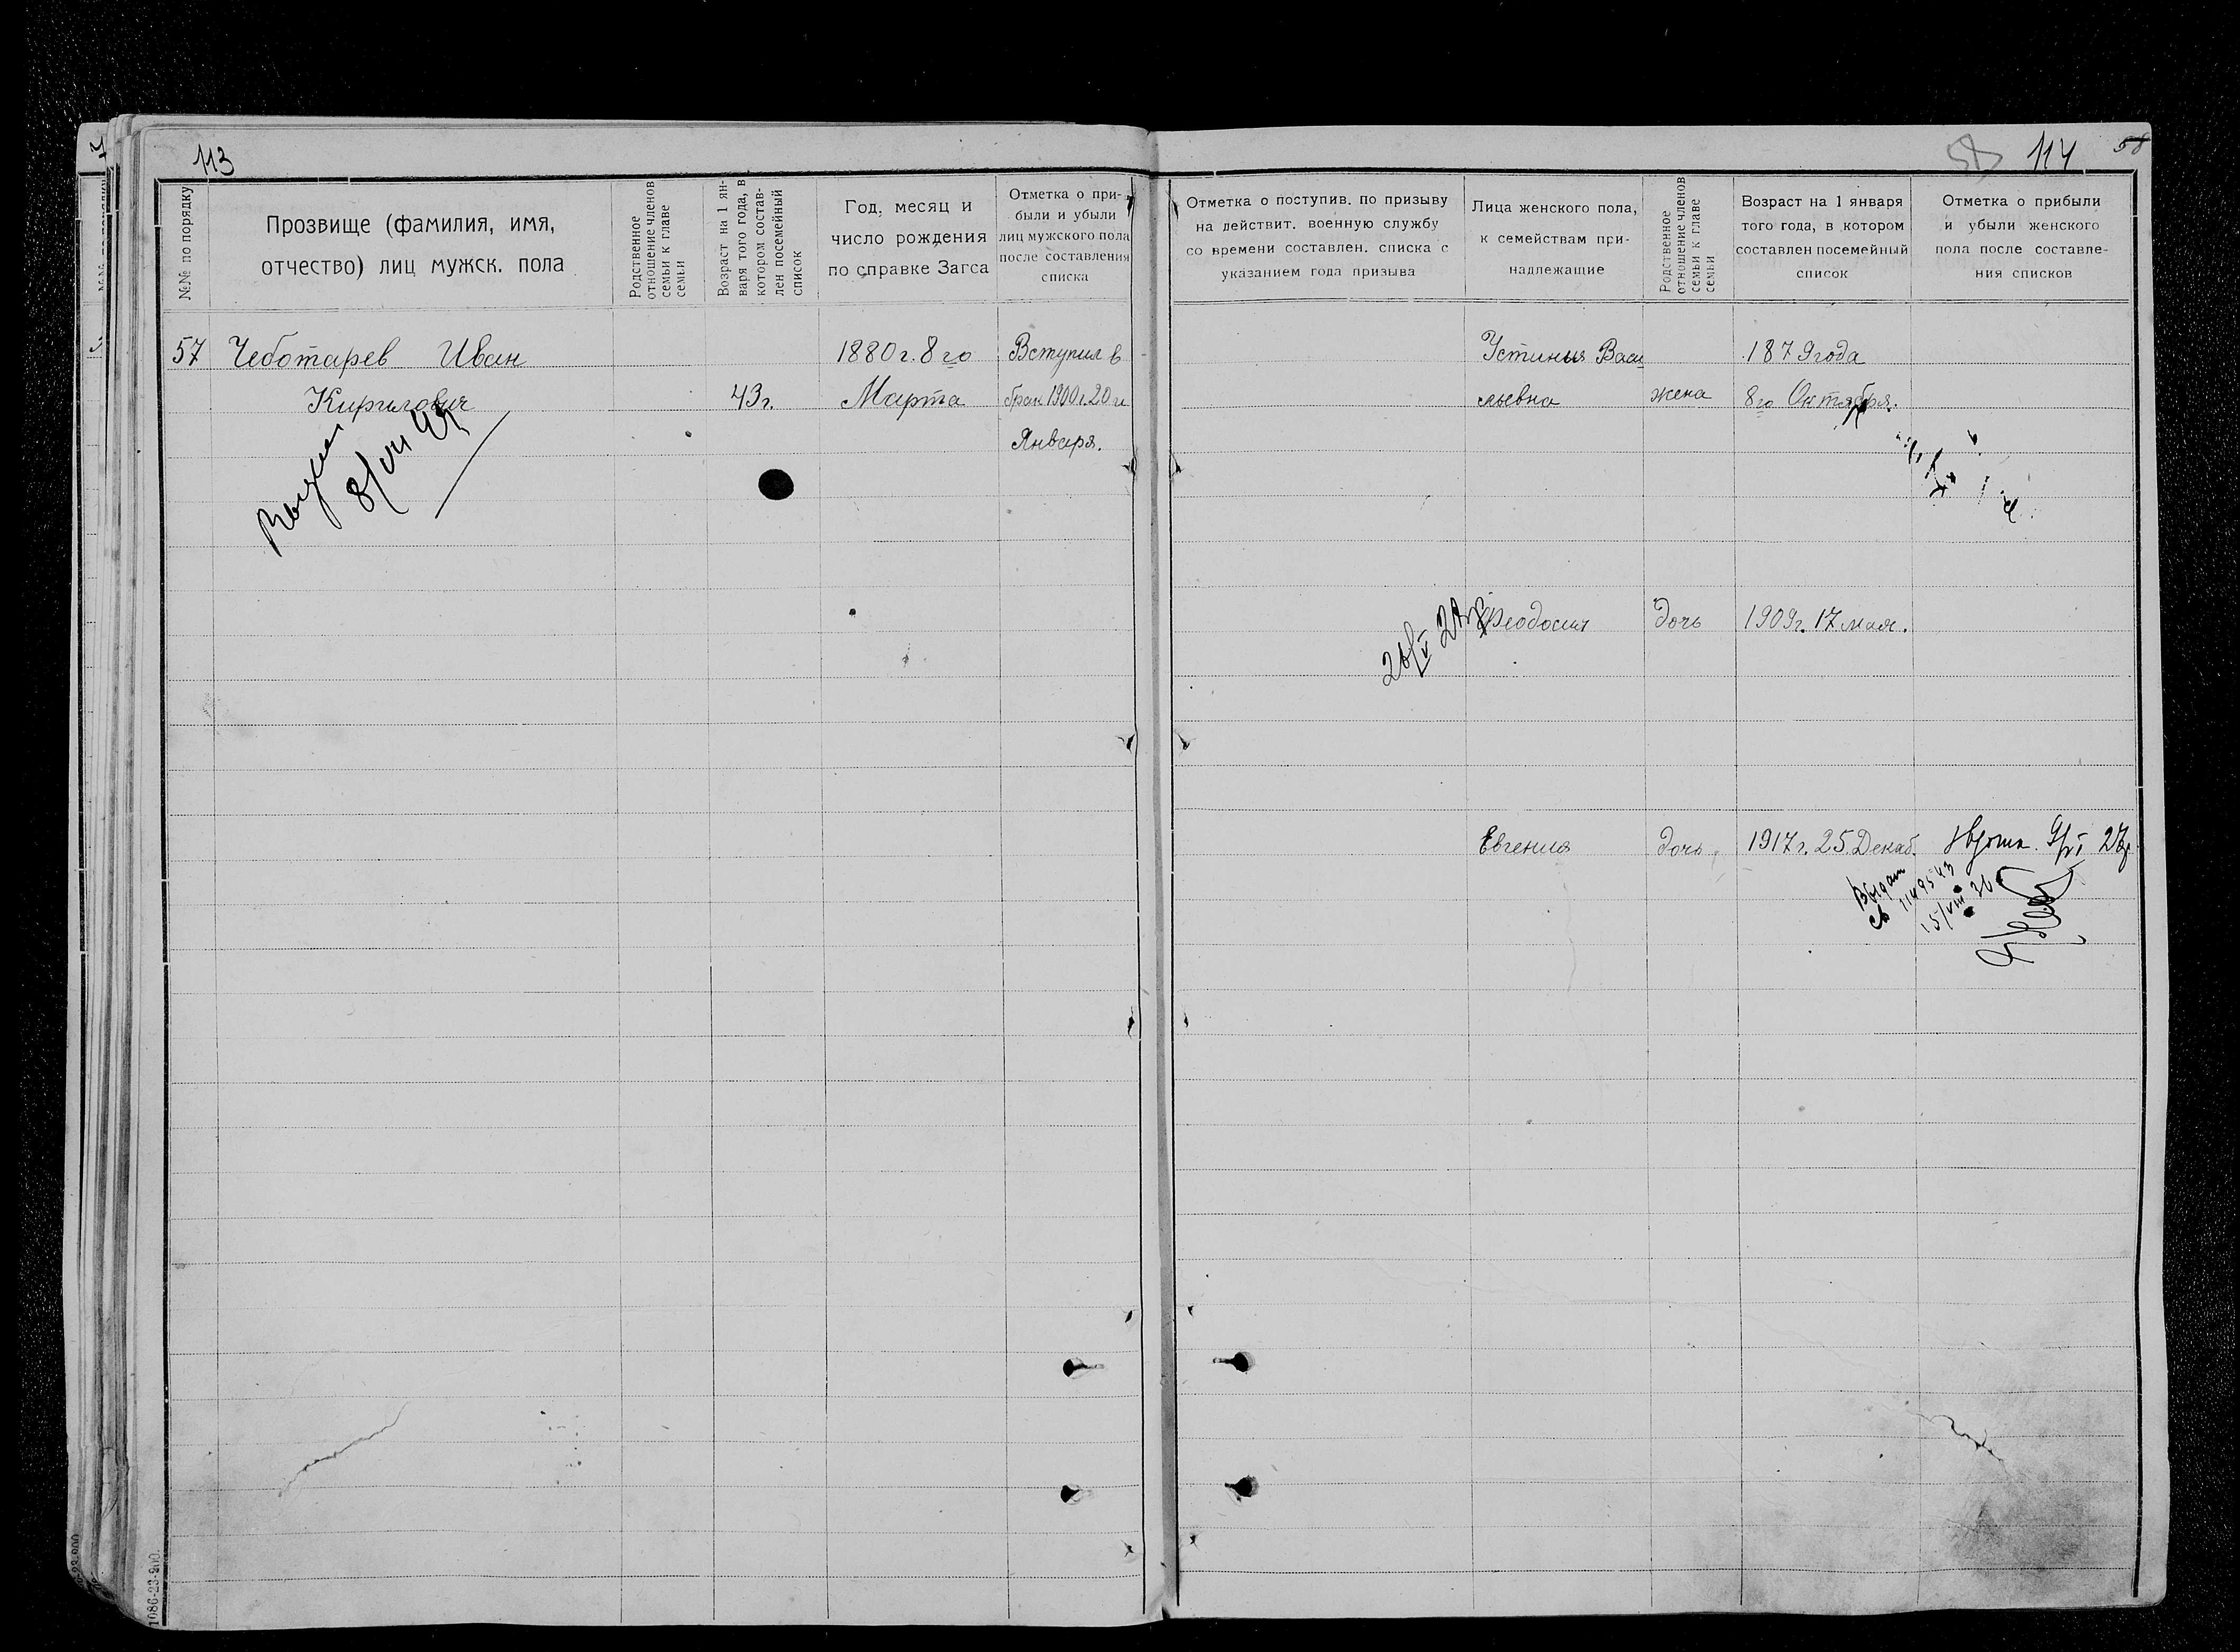 113
№№ по порядку
Прозвище (фамилия, имя,
отчество) лиц мужск. пола
Родственное
отношение членов
семьи к главе
семьи
Возраст на 1 ян-
варя того года, в
котором состав-
лен посемейный
список
Год, месяц и
число рождения
по справке Загса
Отметка о при-
были и убыли
лиц мужского пола
после составления
списка
57 Чеботарев Иван
1880 г. 8го
Вступил в
Кирилович
43 г.
Марта
брак 1900 г. 20го
Января.
8/VII
1086-23-900.
114
58
Отметка о поступив. по призыву
на действит. военную службу
со времени составлен. списка с
указанием года призыва
Лица женского пола,
к семействам при-
надлежащие
Родственное
отношение членов
семьи к главе
семьи
Возраст на 1 января
того года, в котором
составлен посемейный
список
Отметка о прибыли
и убыли женского
пола после составле-
ния списков
Устинья Васи
1879 года
льевна
жена
8го Октября.
26/V
Феодосия
дочь
1909 г. 17 мая.
Евгения
дочь
1917 г. 25 Декаб.
9/VI 27г
Выдан
св 1149543
15/VIII 36